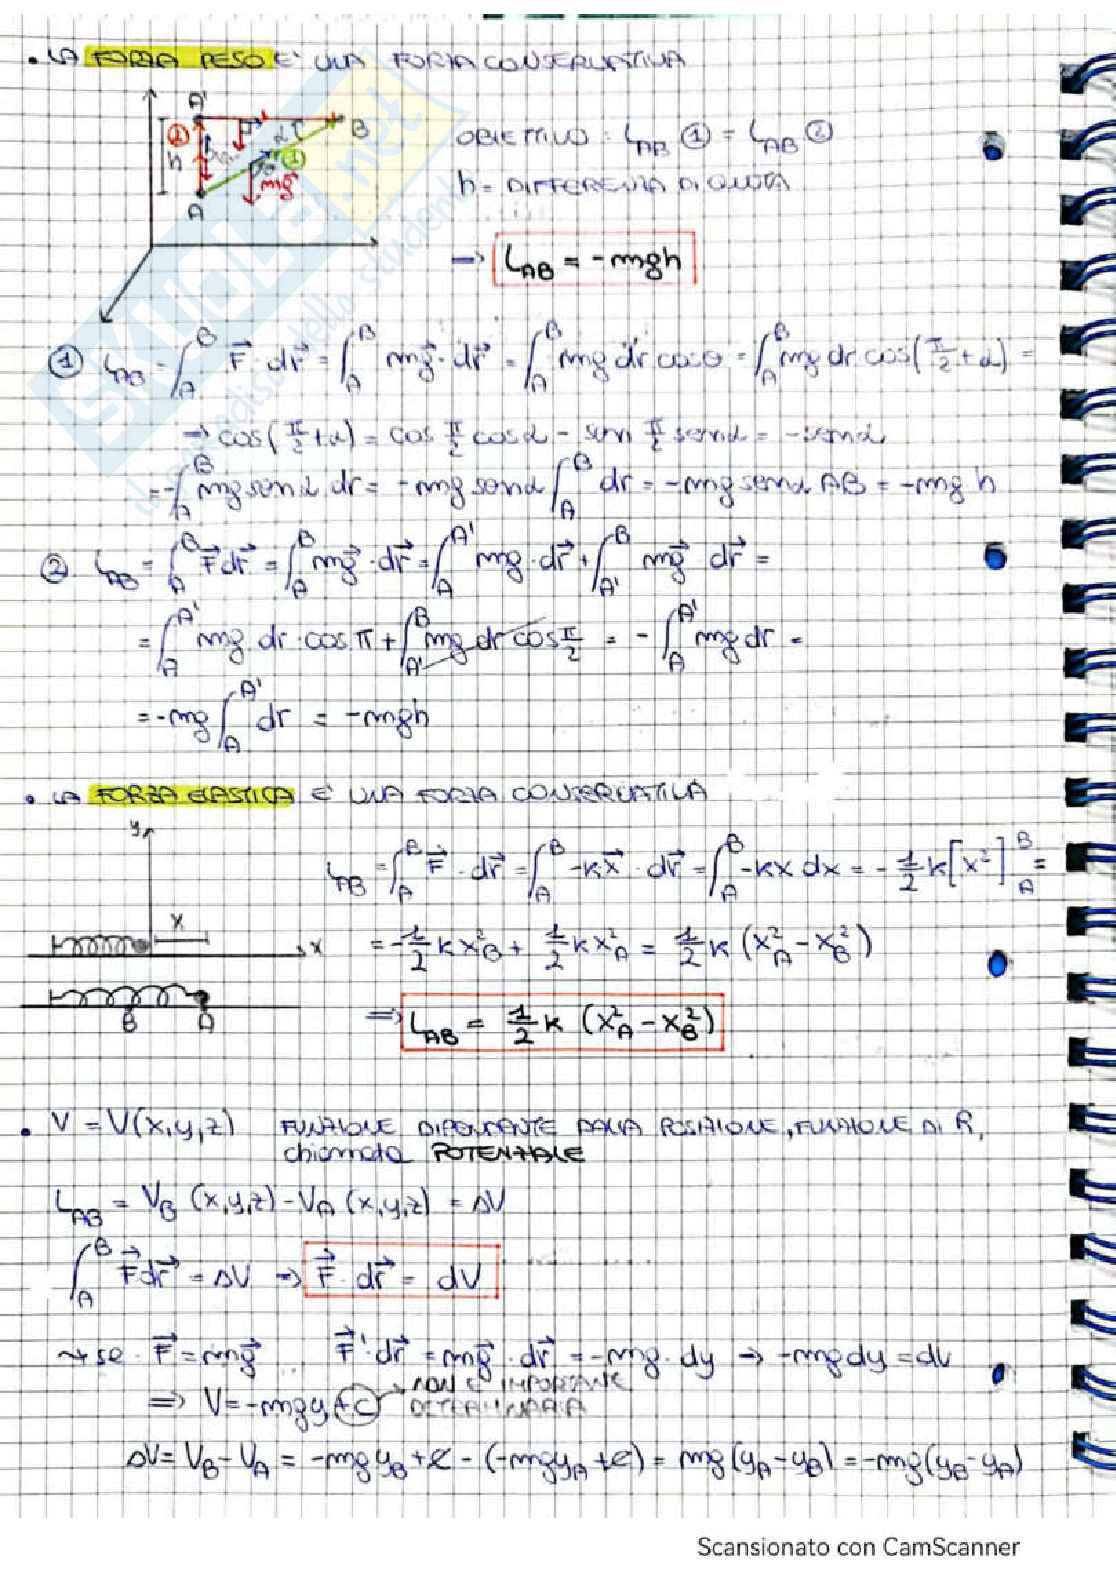 • LA FORZA PESO E' UNA FORZA CONSERVATIVA
A' B
② dr
h ①
mg
A
OBIETTIVO: L_AB ① = L_AB ②
h = DIFFERENZA DI QUOTA
→ L_AB = -mgh
① L_AB = ∫_A^B F⃗ · dr⃗ = ∫_A^B mg⃗ · dr⃗ = ∫_A^B mg dr cosθ = ∫_A^B mg dr cos(π/2 + α) =
→ cos(π/2 + α) = cos π/2 cos α - sen π/2 sen α = -sen α
= -∫_A^B mg sen α dr = -mg sen α ∫_A^B dr = -mg sen α AB = -mg h
② L_AB = ∫_A^B F⃗ dr⃗ = ∫_A^B mg⃗ · dr⃗ = ∫_A^A' mg · dr⃗ + ∫_A'^B mg⃗ dr⃗ =
= ∫_A^A' mg · dr · cos π + ∫_A'^B mg dr cos π/2 = -∫_A^A' mg dr =
= -mg ∫_A^A' dr = -mgh
• LA FORZA ELASTICA E' UNA FORZA CONSERVATIVA
y
x
x
B A
L_AB = ∫_A^B F⃗ · dr⃗ = ∫_A^B -kx⃗ · dr⃗ = ∫_A^B -kx dx = -1/2 k [x²]_A^B =
= -1/2 k x²_B + 1/2 k x²_A = 1/2 k (x²_A - x²_B)
⇒ L_AB = 1/2 k (x²_A - x²_B)
• V = V(x,y,z) FUNZIONE DIPENDENTE DALLA POSIZIONE, FUNZIONE DI R,
chiamata POTENZIALE
L_AB = V_B (x,y,z) - V_A (x,y,z) = ΔV
∫_A^B F⃗ dr⃗ = ΔV → F⃗ · dr⃗ = dV
→ se F⃗ = mg⃗ F⃗ · dr⃗ = mg⃗ · dr⃗ = -mg · dy → -mg dy = dV
⇒ V = -mgy + C → NON E' IMPORTANTE
DETERMINARLA
ΔV = V_B - V_A = -mgy_B + c - (-mgy_A + c) = mg(y_A - y_B) = -mg(y_B - y_A)
Scansionato con CamScanner